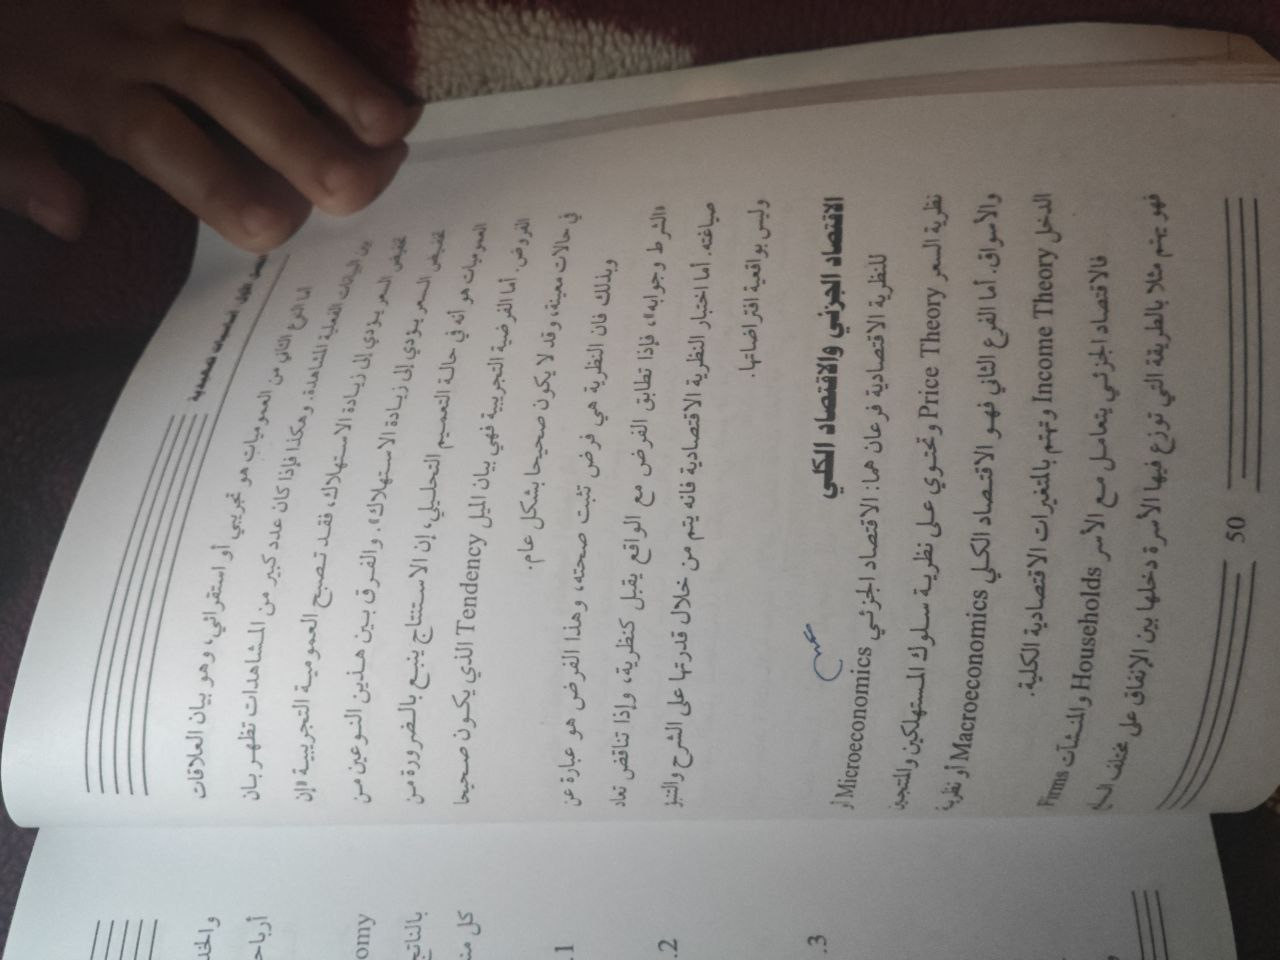 الفصل الأول: أساسيات تمهيدية
أما النوع الثاني من العموميات هو تجريبي أو استقرائي، وهو بيان العلاقات
بين البيانات الفعلية المشاهدة. وهكذا فإذا كان عدد كبير من المشاهدات تظهر بان
تخفيض السعر يؤدي إلى زيادة الاستهلاك، فقد تصبح العمومية التجريبية «إن
تخفيض السعر يؤدي إلى زيادة الاستهلاك». والفرق بين هذين النوعين من
العموميات هو أنه في حالة التعميم التحليلي، إن الاستنتاج ينبع بالضرورة من
الفروض. أما الفرضية التجريبية فهي بيان الميل Tendency الذي يكون صحيحا
في حالات معينة، وقد لا يكون صحيحا بشكل عام.
وبذلك فان النظرية هي فرض تثبت صحته، وهذا الفرض هو عبارة عن
«الشرط وجوابه»، فإذا تطابق الفرض مع الواقع يقبل كنظرية، وإذا تناقض تعاد
صياغته. أما اختبار النظرية الاقتصادية فانه يتم من خلال قدرتها على الشرح والتنبؤ
وليس بواقعية افتراضاتها.
الاقتصاد الجزئي والاقتصاد الكلي
للنظرية الاقتصادية فرعان هما: الاقتصاد الجزئي Microeconomics أو
نظرية السعر Price Theory وتحتوي على نظرية سلوك المستهلكين والمنتجين
والأسواق. أما الفرع الثاني فهو الاقتصاد الكلي Macroeconomics أو نظرية
الدخل Income Theory وتهتم بالمتغيرات الاقتصادية الكلية.
فالاقتصاد الجزئي يتعامل مع الأسر Households والمنشآت Firms
فهو يهتم مثلا بالطريقة التي توزع فيها الأسرة دخلها بين الإنفاق على مختلف السلع
50
والخد
أرباح
omy
بالناتج
كل من
1.
2.
3.